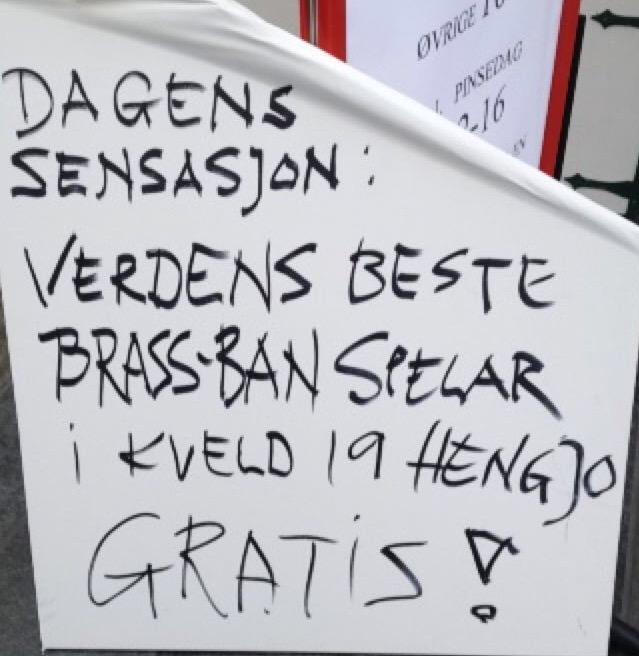 ØVRIGE
PINSEDAG
-16
DAGENS
SENSASJON:
VERDENS BESTE
BRASS-BAN SPELAR
i KVELD 19 HENGJO
GRATiS!